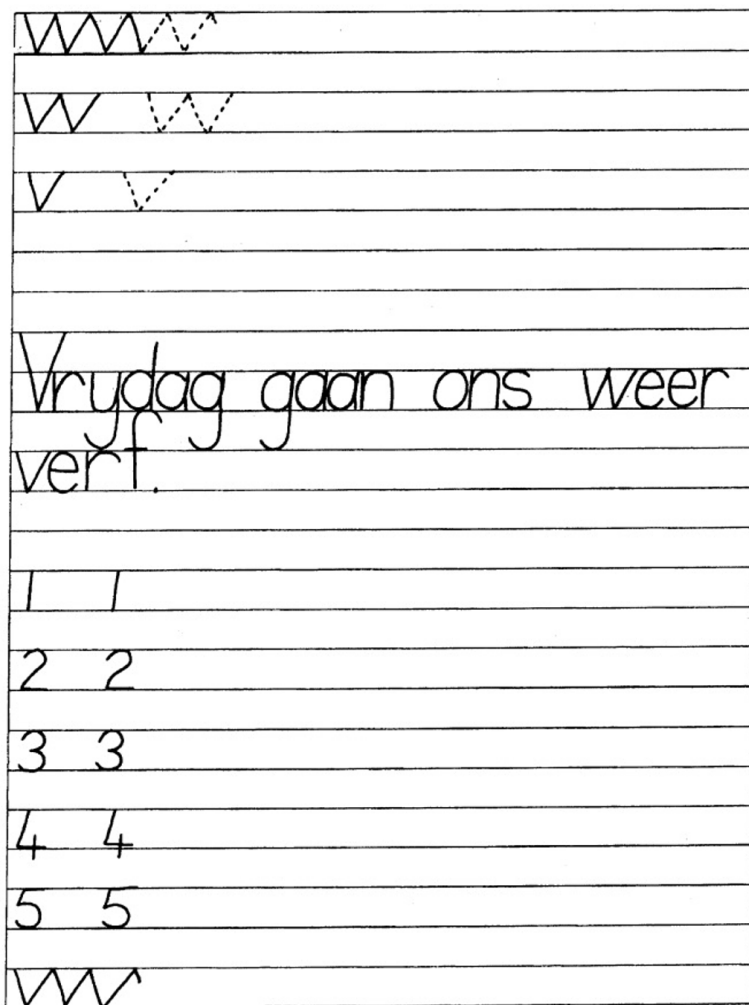 w w
v v
Vrydag gaan ons weer
verf.
1 1
2 2
3 3
4 4
5 5